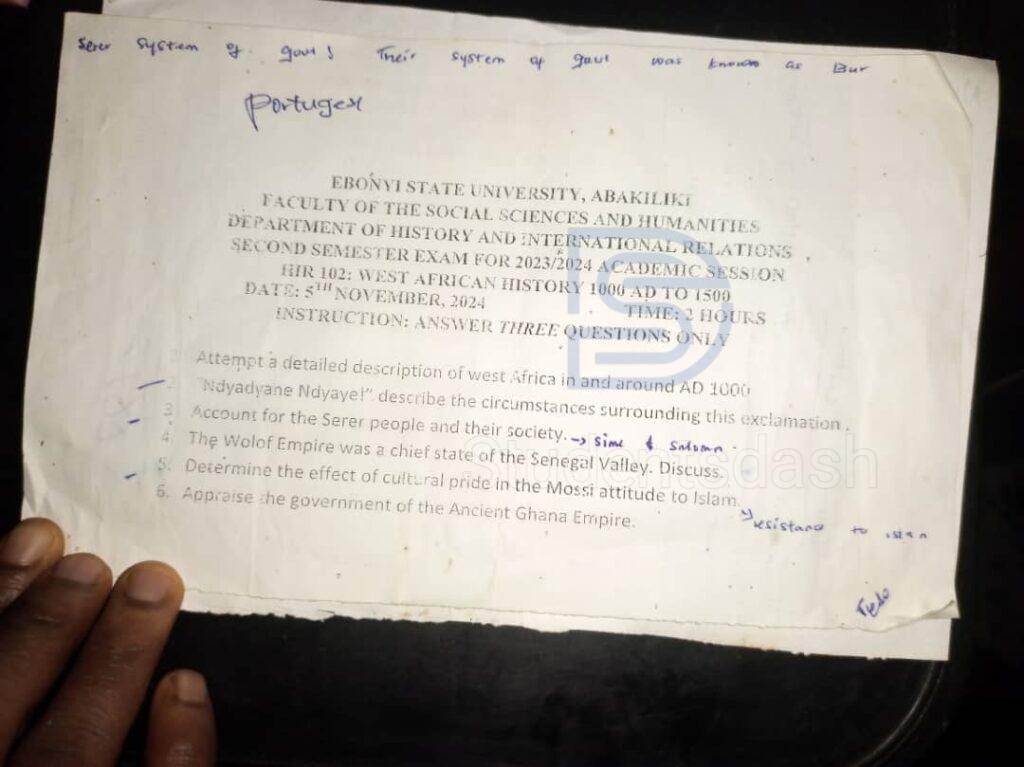 Serer system of govt! Their system of govt was known as Bur
EBONYI STATE UNIVERSITY, ABAKILIKI
FACULTY OF THE SOCIAL SCIENCES AND HUMANITIES
DEPARTMENT OF HISTORY AND INTERNATIONAL RELATIONS
SECOND SEMESTER EXAM FOR 2023/2024 ACADEMIC SESSION
HIR 102: WEST AFRICAN HISTORY 1000 AD TO 1500
DATE: 5TH NOVEMBER, 2024 TIME: 2 HOURS
INSTRUCTION: ANSWER THREE QUESTIONS ONLY
Attempt a detailed description of west Africa in and around AD 1000
2. "Ndyadyane Ndyaye!" describe the circumstances surrounding this exclamation.
3. Account for the Serer people and their society. → Sine & Saloum
4. The Wolof Empire was a chief state of the Senegal Valley. Discuss.
5. Determine the effect of cultural pride in the Mossi attitude to Islam.
6. Appraise the government of the Ancient Ghana Empire.
resistance to islam
Studentsdash